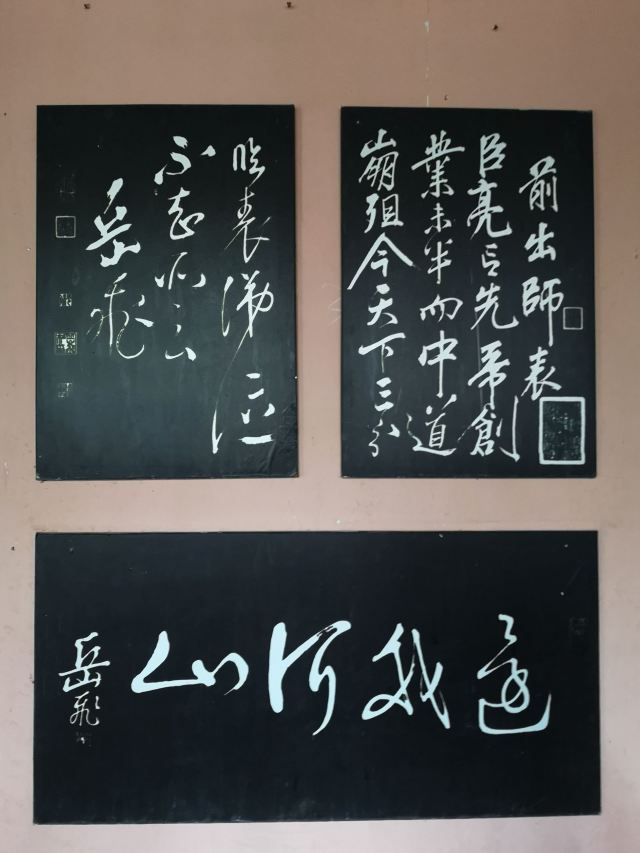 前出師表
臣亮言先帝創
業未半而中道
崩殂今天下三分
臨表涕泣
不知所云
岳飛
還我河山
岳飛